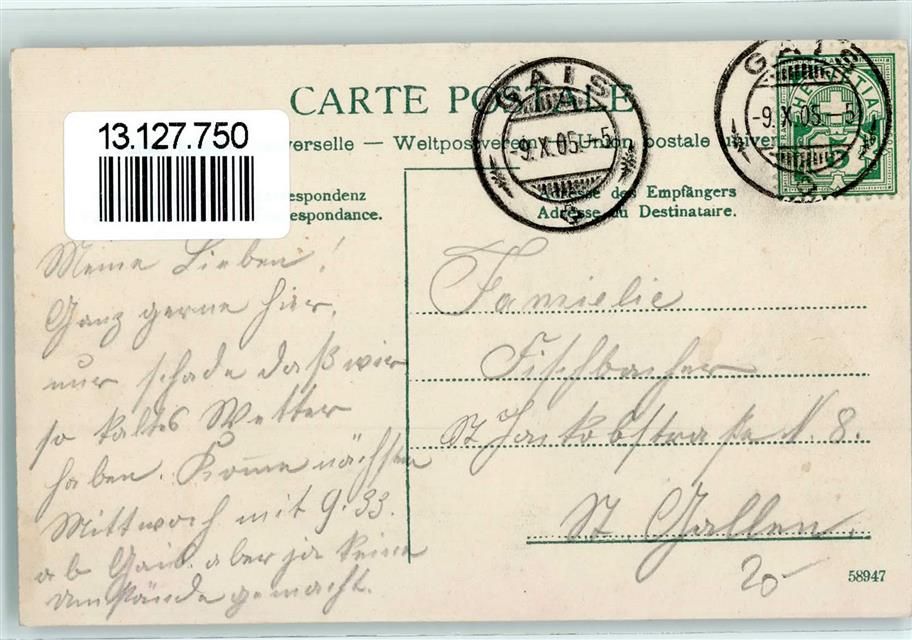 CARTE POSTALE
13.127.750
verselle — Weltpostverein — Union postale univer
GAIS
-9.X.05.-5
GAIS
-9.X.05.-5
HELVETIA
5
espondenz
espondance.
des Empfängers
Adresse du Destinataire.
Meine Lieben!
Ganz gerne hier,
nur schade daß wir
so kaltes Wetter
haben. Komme nächsten
Mittwoch mit 9.33.
ab Gais. aber ja keine
Umstände gemacht.
Familie
Fischbacher
St. Jakobstraße N. 8.
St. Gallen.
20-
58947